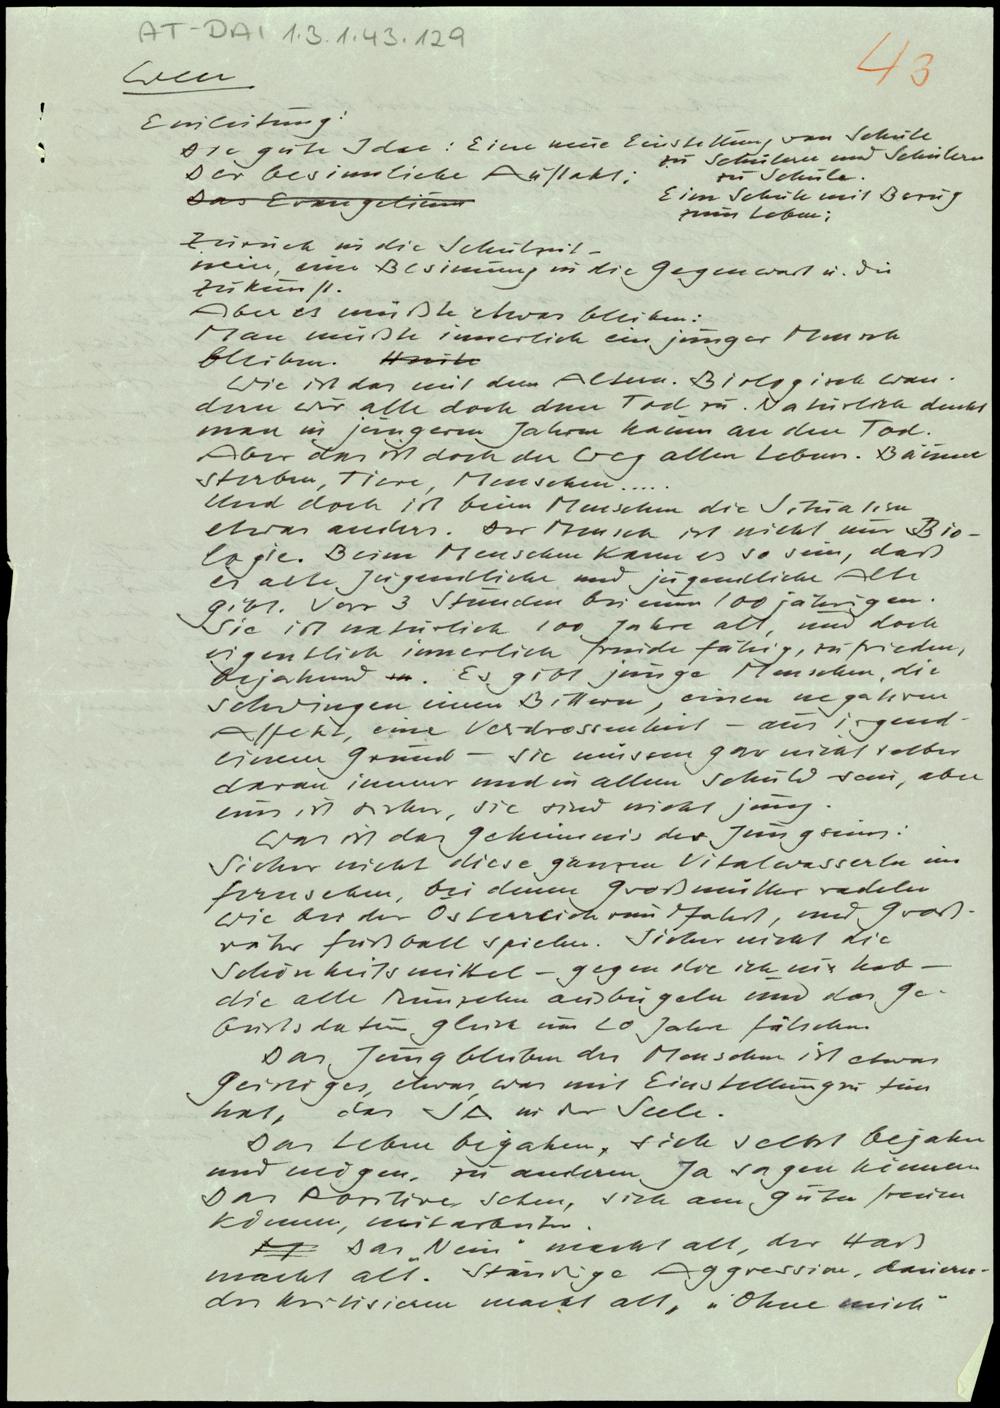 AT-DAI 1.3.1.43.129
43
Einleitung:
Die gute Idee: Eine neue Einstellung von Schule
zu Schülern und Schülern
zu Schule.
Der besinnliche Auftakt:
Eine Schule mit Bezug
zum Leben:
Das Evangelium
Zurück in die Schulzeit –
nein, eine Besinnung in die Gegenwart u. die
Zukunft.
Aber es müßte etwas bleiben:
Man müßte innerlich ein junger Mensch
bleiben. Heute
Wie ist das mit dem Altern. Biologisch wan-
dern wir alle doch dem Tod zu. Natürlich denkt
man in jüngeren Jahren kaum an den Tod.
Aber das ist doch der Weg allen Lebens. Bäume
sterben, Tiere, Menschen.....
Und doch ist beim Menschen die Situation
etwas anders. Der Mensch ist nicht nur Bio-
logie. Beim Menschen kann es so sein, daß
es alte Jugendliche und jugendliche Alte
gibt. Vor 3 Stunden bei einer 100 jährigen.
Sie ist natürlich 100 Jahre alt, und doch
eigentlich innerlich freudefähig, zufrieden,
bejahend. Es gibt junge Menschen, die
schwingen einen Bittern, einen negativen
Affekt, eine Verdrossenheit – aus irgend-
einem Grund – sie müssen gar nicht selber
daran immer und in allem Schuld sein, aber
eins ist sicher, sie sind nicht jung.
Was ist das Geheimnis des Jungseins:
Sicher nicht diese ganzen Vitalwasserln im
Fernsehen, bei denen Großmütter radeln
wie bei der Österreichrundfahrt, und Groß-
väter Fußball spielen. Sicher nicht die
Schönheitsmittel – gegen die ich nix hab –
die alle Runzeln ausbügeln und das Ge-
burtsdatum gleich um 20 Jahre fälschen.
Das Jungbleiben des Menschen ist etwas
Geistiges, etwas, was mit Einstellungen zu tun
hat, das JA in der Seele.
Das Leben bejahen, sich selbst bejahen
und mögen, zu anderen Ja sagen können
Das Positive sehen, sich am Guten freuen
können, mitarbeiten.
Das „Nein" macht alt, der Haß
macht alt. Ständige Aggression, dauern-
des Kritisieren macht alt, „Ohne mich"